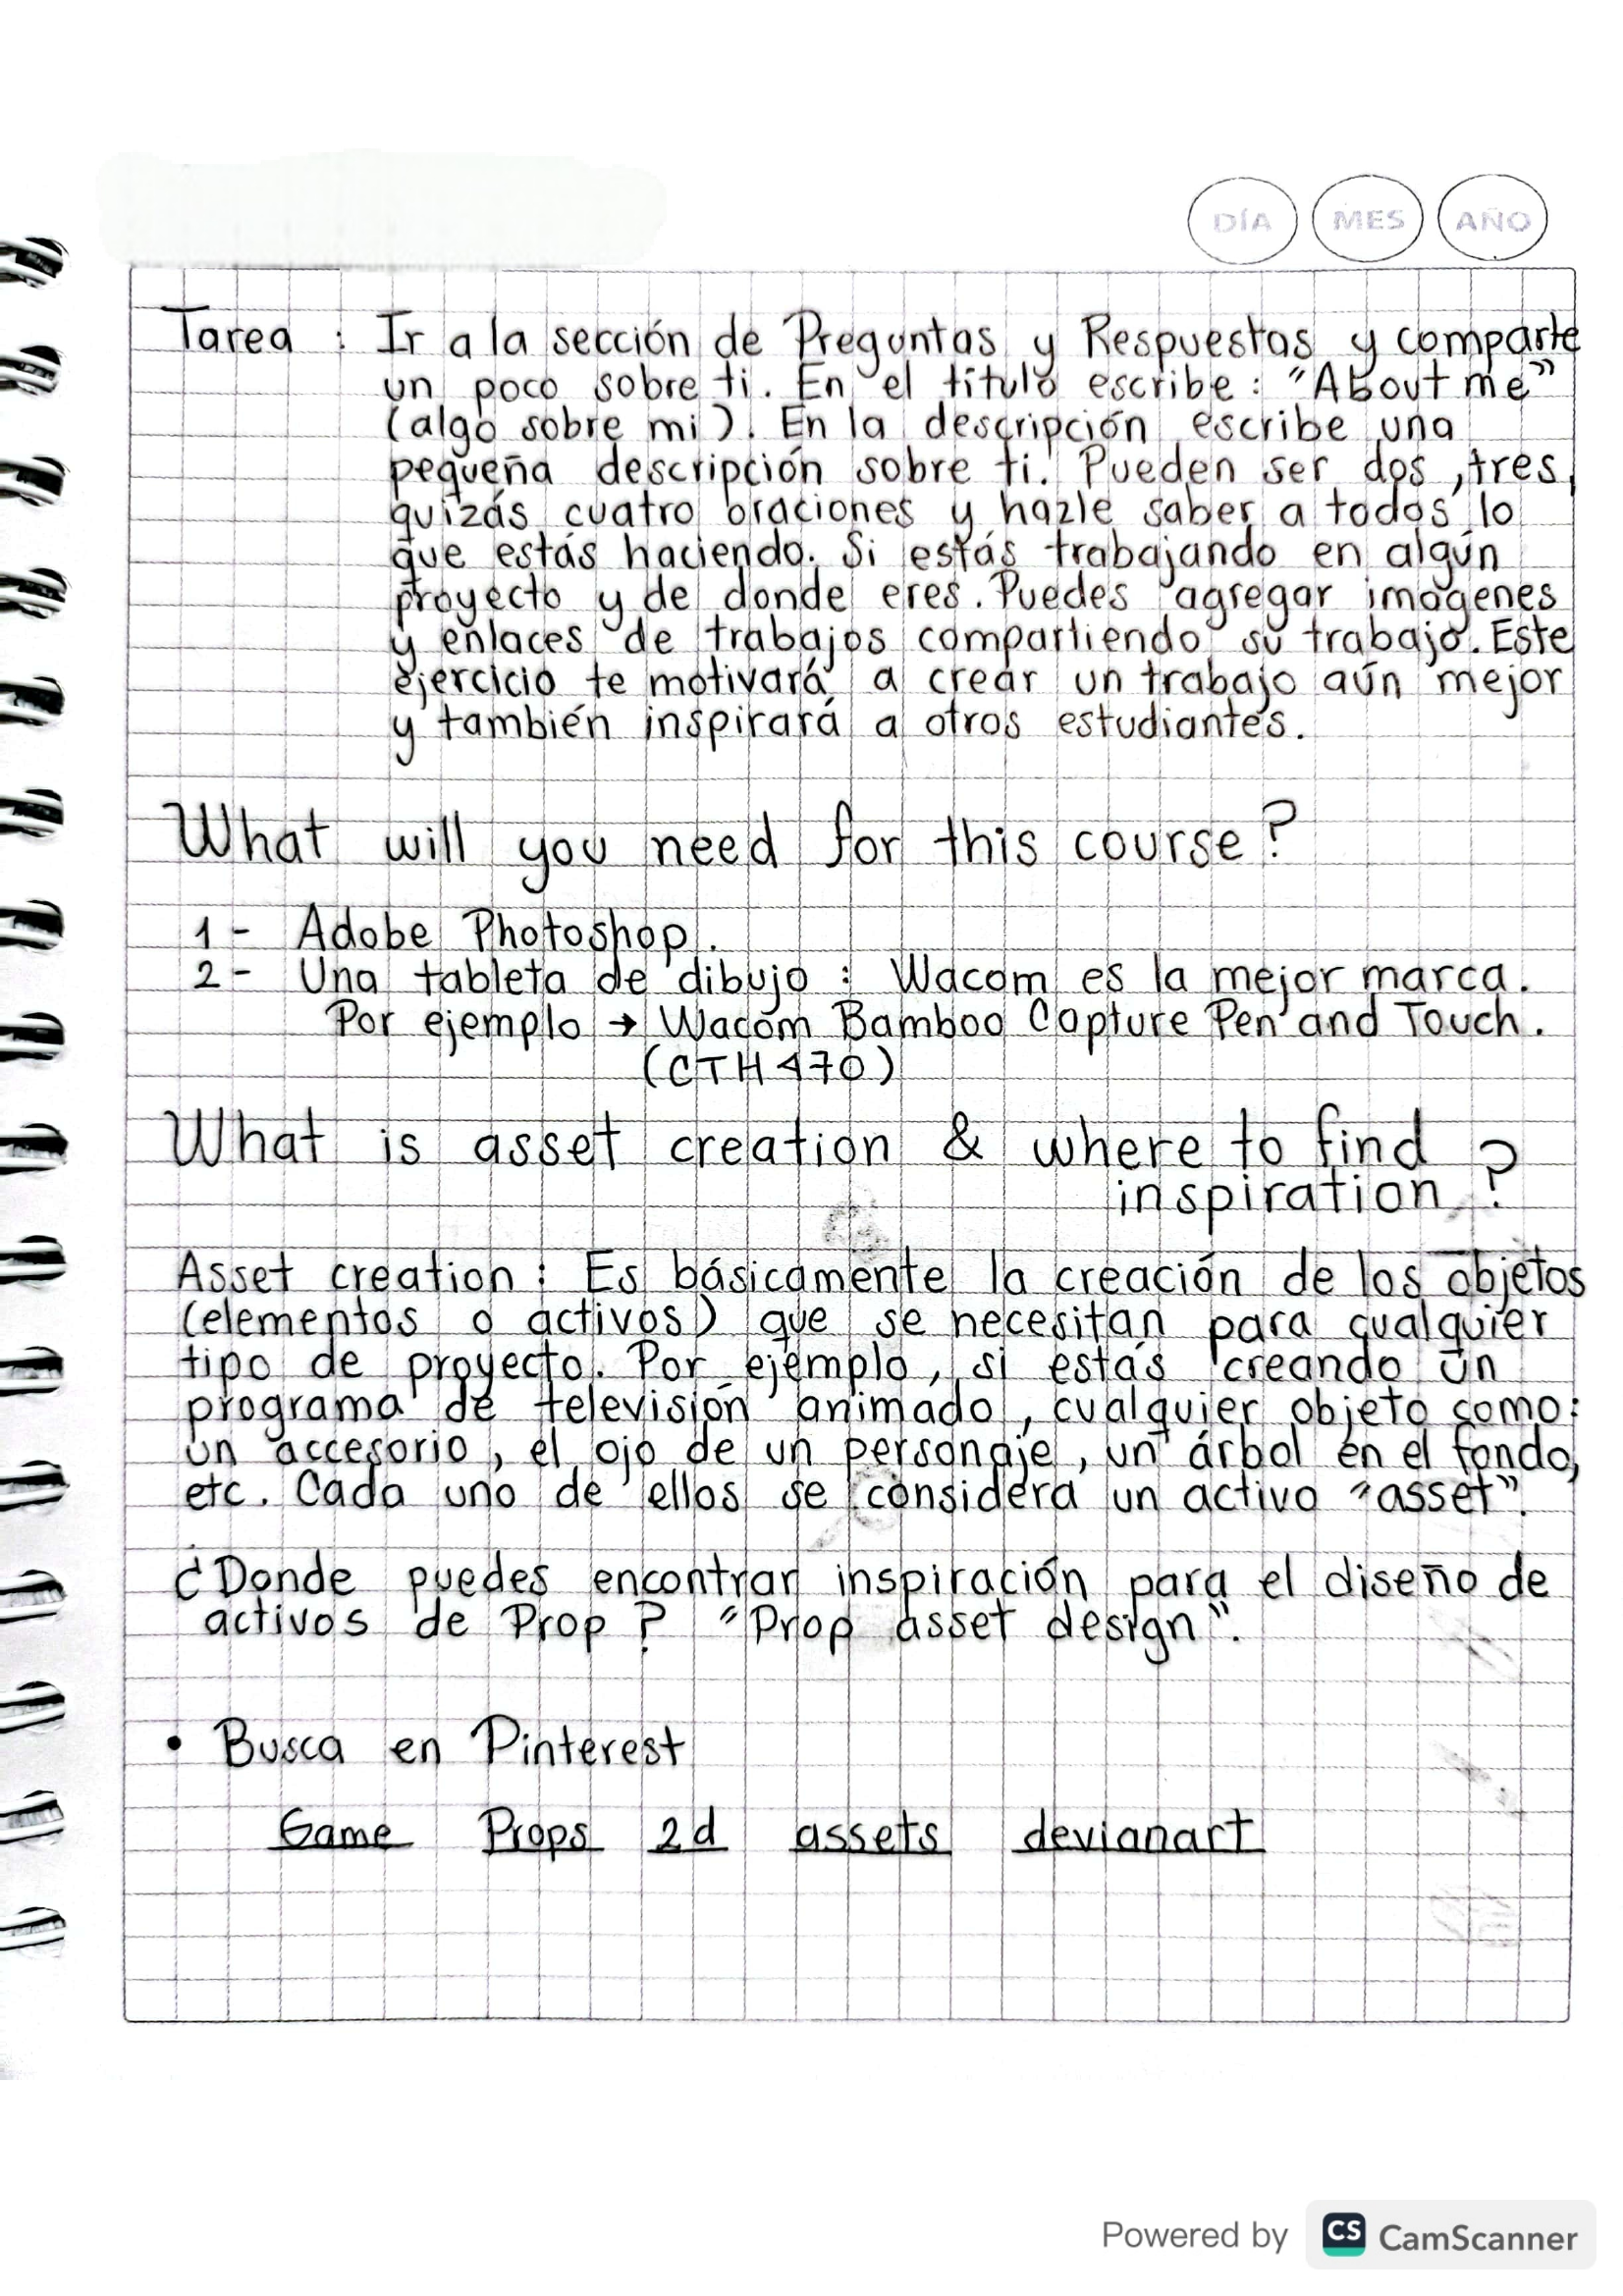 DÍA MES AÑO
Tarea : Ir a la sección de Preguntas y Respuestas y comparte
un poco sobre ti. En el título escribe: "About me"
(algo sobre mi). En la descripción escribe una
pequeña descripción sobre ti. Pueden ser dos, tres,
quizás cuatro oraciones y hazle saber a todos lo
que estás haciendo. Si estás trabajando en algún
proyecto y de donde eres. Puedes agregar imágenes
y enlaces de trabajos compartiendo su trabajo. Este
ejercicio te motivará a crear un trabajo aún mejor
y también inspirará a otros estudiantes.
What will you need for this course?
1- Adobe Photoshop.
2- Una tableta de dibujo : Wacom es la mejor marca.
Por ejemplo → Wacom Bamboo Capture Pen and Touch.
(CTH470)
What is asset creation & where to find
inspiration ?
Asset creation : Es básicamente la creación de los objetos
(elementos o activos) que se necesitan para cualquier
tipo de proyecto. Por ejemplo, si estás creando un
programa de televisión animado, cualquier objeto como:
un accesorio, el ojo de un personaje, un árbol en el fondo,
etc. Cada uno de ellos se considera un activo "asset".
¿Donde puedes encontrar inspiración para el diseño de
activos de Prop? "Prop asset design".
• Busca en Pinterest
Game Props 2d assets devianart
Powered by CS CamScanner